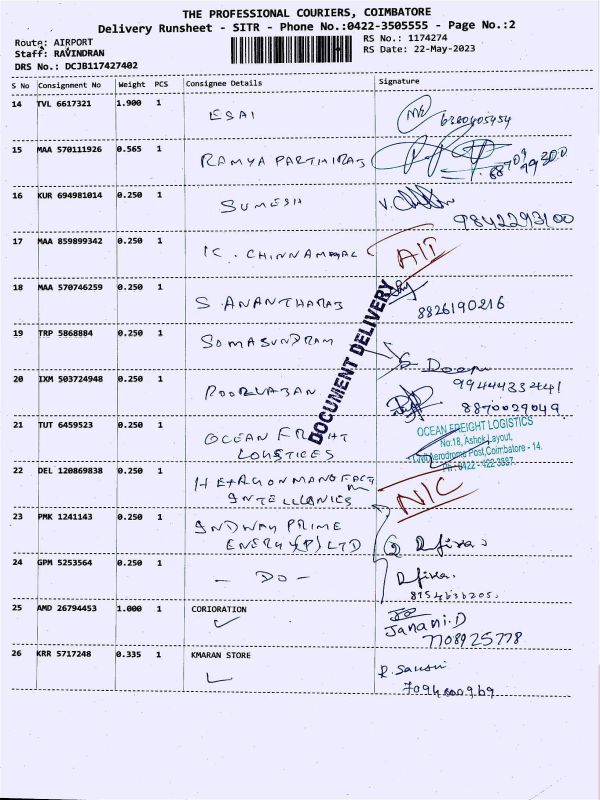 THE PROFESSIONAL COURIERS, COIMBATORE
Delivery Runsheet - SITR - Phone No.:0422-3505555 - Page No.:2
Route: AIRPORT
RS No.: 1174274
Staff: RAVINDRAN
RS Date: 22-May-2023
DRS No.: DCJB117427402
S No Consignment No Weight PCS Consignee Details Signature
14 TVL 6617321 1.900 1 ESAI
6380405454
15 MAA 570111926 0.565 1 RAMYA PARTHIRAJ
16 KUR 694981014 0.250 1 SUMESH
9842293100
17 MAA 859899342 0.250 1 K. CHINNAMMAL
18 MAA 570746259 0.250 1 S ANANTHARAJ
8826190216
DOCUMENT DELIVERY
19 TRP 5868884 0.250 1 SOMASUNDRAM
20 IXM 503724948 0.250 1 POORVAJAN
9944433441
8870029049
21 TUT 6459523 0.250 1 OCEAN FREIGHT
OCEAN FREIGHT LOGISTICS
No:18, Ashok Layout,
Aerodrome Post, Coimbatore - 14.
Ph : 0422 - 422 3887
22 DEL 120869838 0.250 1
N/C
23 PMK 1241143 0.250 1 INDWAY PRIME
ENERGY (P) LTD
24 GPM 5253564 0.250 1 - DO -
25 AMD 26794453 1.000 1 CORIORATION
Janani.D
7708925778
26 KRR 5717248 0.335 1 KMARAN STORE